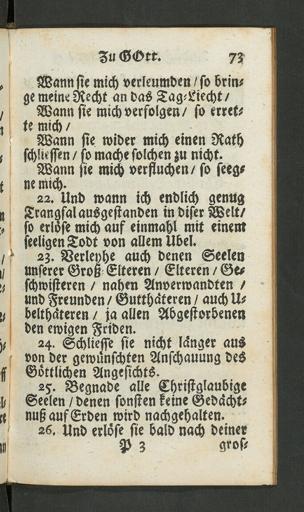 Zu GOtt. 73
Wann sie mich verleumden / so brin-
ge meine Recht an das Tag-Liecht /
Wann sie mich verfolgen / so erret-
te mich /
Wann sie wider mich einen Rath
schliessen / so mache solchen zu nicht.
Wann sie mich verfluchen / so seeg-
ne mich.
22. Und wann ich endlich genug
Trangsal ausgestanden in diser Welt /
so erlöse mich auf einmahl mit einem
seeligen Todt von allem Ubel.
23. Verleyhe auch denen Seelen
unserer Groß-Elteren / Elteren / Ge-
schwisteren / nahen Anverwandten /
und Freunden / Gutthäteren / auch U-
belthäteren / ja allen Abgestorbenen
den ewigen Friden.
24. Schliesse sie nicht länger aus
von der gewünschten Anschauung des
Göttlichen Angesichts.
25. Begnade alle Christglaubige
Seelen / denen sonsten keine Gedächt-
nuß auf Erden wird nachgehalten.
26. Und erlöse sie bald nach deiner
P 3 gros-